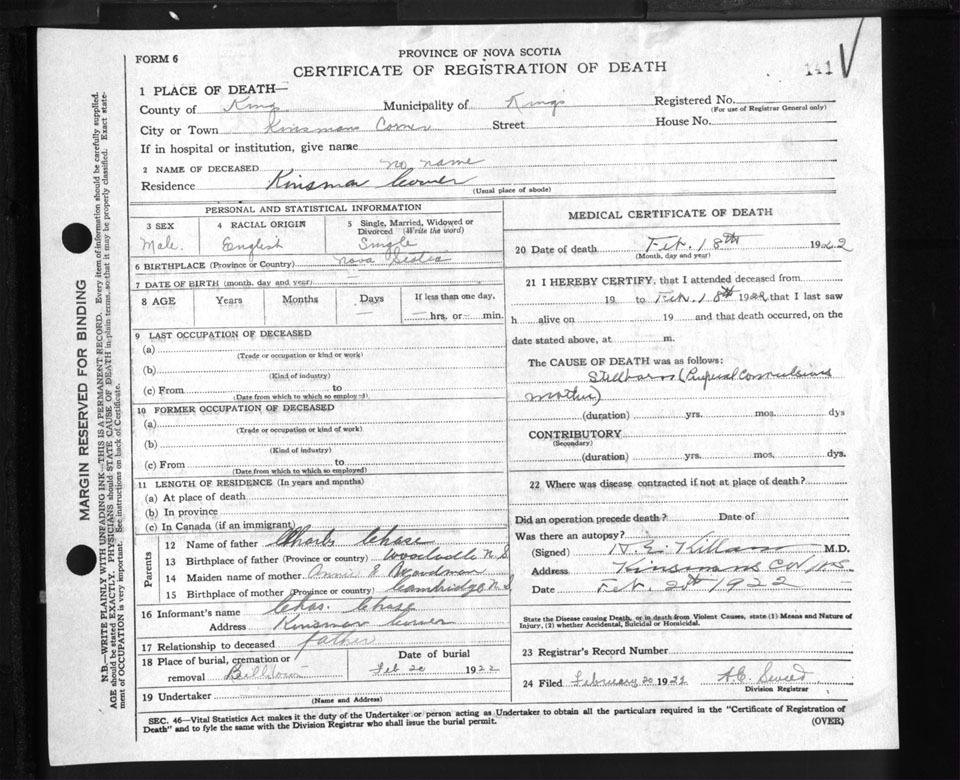 PROVINCE OF NOVA SCOTIA
FORM 6
CERTIFICATE OF REGISTRATION OF DEATH
141
1 PLACE OF DEATH—
County of Kings Municipality of Kings Registered No.
(For use of Registrar General only)
City or Town Kinsmans Corner Street House No.
If in hospital or institution, give name
2 NAME OF DECEASED no name
Residence Kinsman Corner
(Usual place of abode)
PERSONAL AND STATISTICAL INFORMATION
3 SEX 4 RACIAL ORIGIN 5 Single, Married, Widowed or Divorced (Write the word)
Male. English Single
6 BIRTHPLACE (Province or Country) Nova Scotia
7 DATE OF BIRTH (month, day and year) —
8 AGE Years Months Days If less than one day,
— — hrs. or — min.
9 LAST OCCUPATION OF DECEASED
(a)
(Trade or occupation or kind or work)
(b)
(Kind of industry)
(c) From to
(Date from which to which so employed)
10 FORMER OCCUPATION OF DECEASED
(a)
(Trade or occupation or kind of work)
(b)
(Kind of industry)
(c) From to
(Date from which to which so employed)
11 LENGTH OF RESIDENCE (In years and months)
(a) At place of death
(b) In province
(c) In Canada (if an immigrant)
Parents
12 Name of father Charls Chase
13 Birthplace of father (Province or country) N. S
14 Maiden name of mother Annie E Woodman
15 Birthplace of mother (Province or country) Cambridge N. S.
16 Informant's name Chas. Chase
Address Kinsman Corner
17 Relationship to deceased father
18 Place of burial, cremation or Date of burial
removal Billtown Feb 20 1922
19 Undertaker
(Name and Address)
MEDICAL CERTIFICATE OF DEATH
20 Date of death Feb. 18th 1922
(Month, day and year)
21 I HEREBY CERTIFY, that I attended deceased from
19 to Feb. 18th 1922, that I last saw
h alive on 19 and that death occurred, on the
date stated above, at m.
The CAUSE OF DEATH was as follows:
Stillborn (Puerperal Convulsions
mother)
(duration) yrs. mos. dys
CONTRIBUTORY
(Secondary)
(duration) yrs. mos. dys.
22 Where was disease contracted if not at place of death?
Did an operation precede death? Date of
Was there an autopsy?
(Signed) Killam M.D.
Address Kinsmans Cor NS
Date Feb. 20th 1922
State the Disease causing Death, or in death from Violent Causes, state (1) Means and Nature of
Injury, (2) whether Accidental, Suicidal or Homicidal.
23 Registrar's Record Number
24 Filed February 20 1922
Division Registrar
SEC. 46—Vital Statistics Act makes it the duty of the Undertaker or person acting as Undertaker to obtain all the particulars required in the "Certificate of Registration of
Death" and to fyle the same with the Division Registrar who shall issue the burial permit.
(OVER)
MARGIN RESERVED FOR BINDING
N.B.—WRITE PLAINLY WITH UNFADING INK—THIS IS A PERMANENT RECORD. Every item of information should be carefully supplied.
AGE should be stated EXACTLY. PHYSICIANS should STATE CAUSE OF DEATH in plain terms, so that it may be properly classified. Exact state-
ment of OCCUPATION is very important. See instructions on back of Certificate.